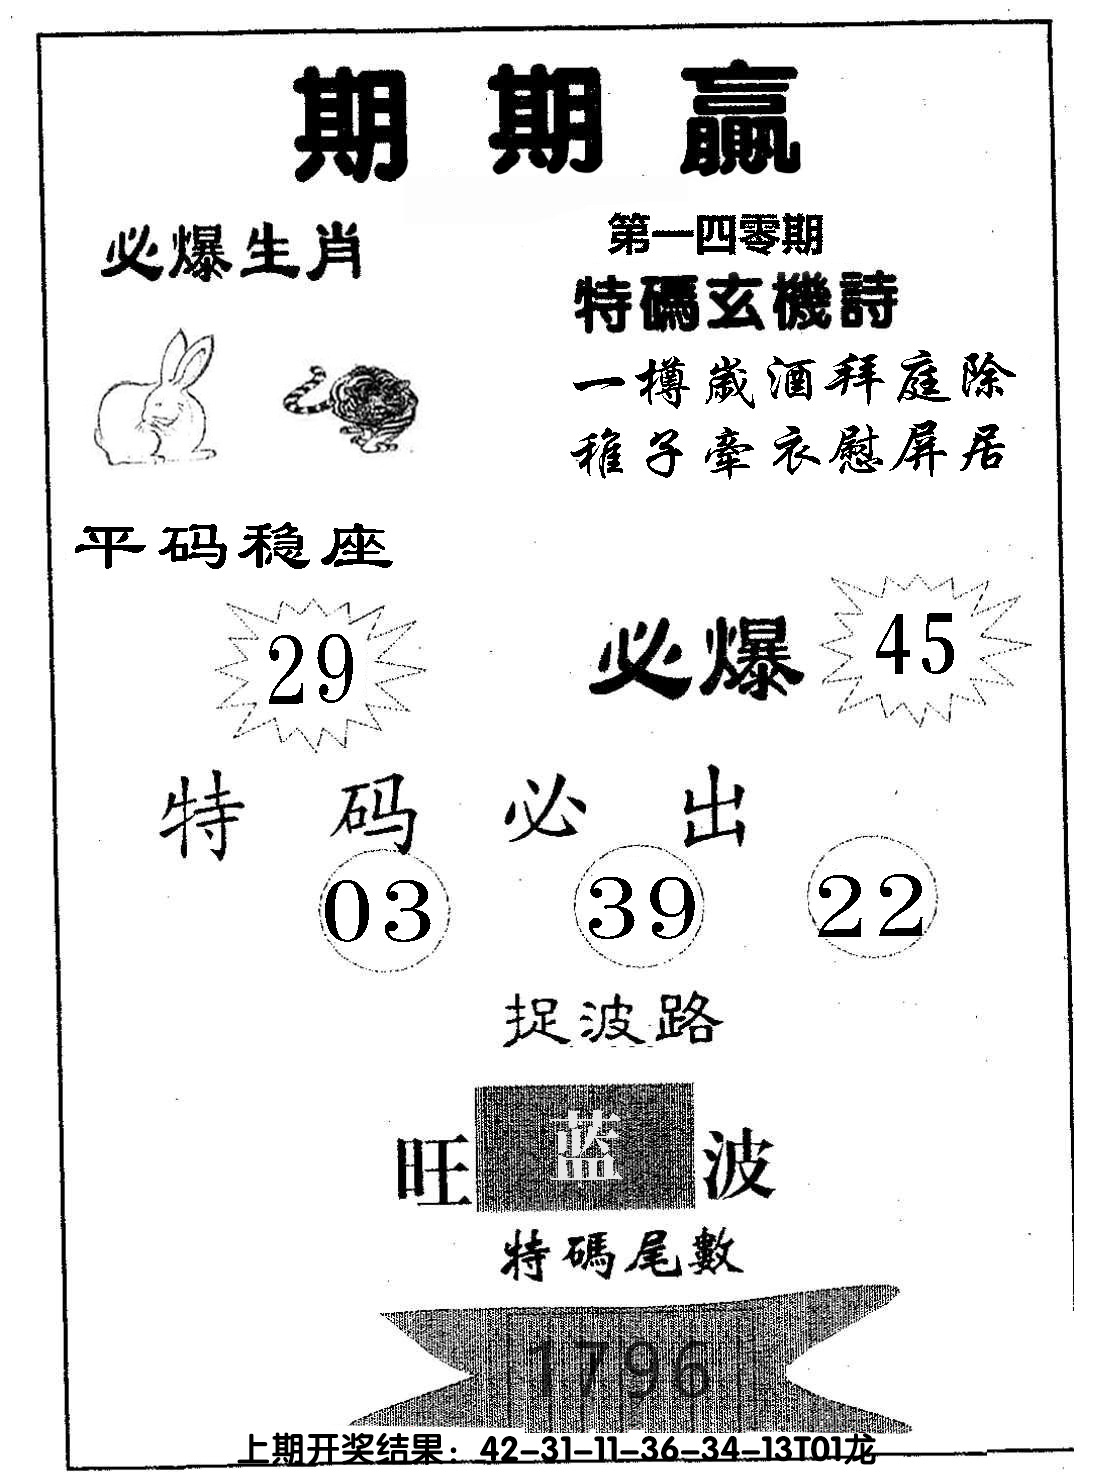 期期赢
必爆生肖
第一四零期
特碼玄機詩
一樽歲酒拜庭除
稚子牽衣慰屏居
平码稳座
29
必爆 45
特码必出
03 39 22
捉波路
旺 蓝 波
特碼尾數
1796
上期开奖结果：42-31-11-36-34-13T01龙